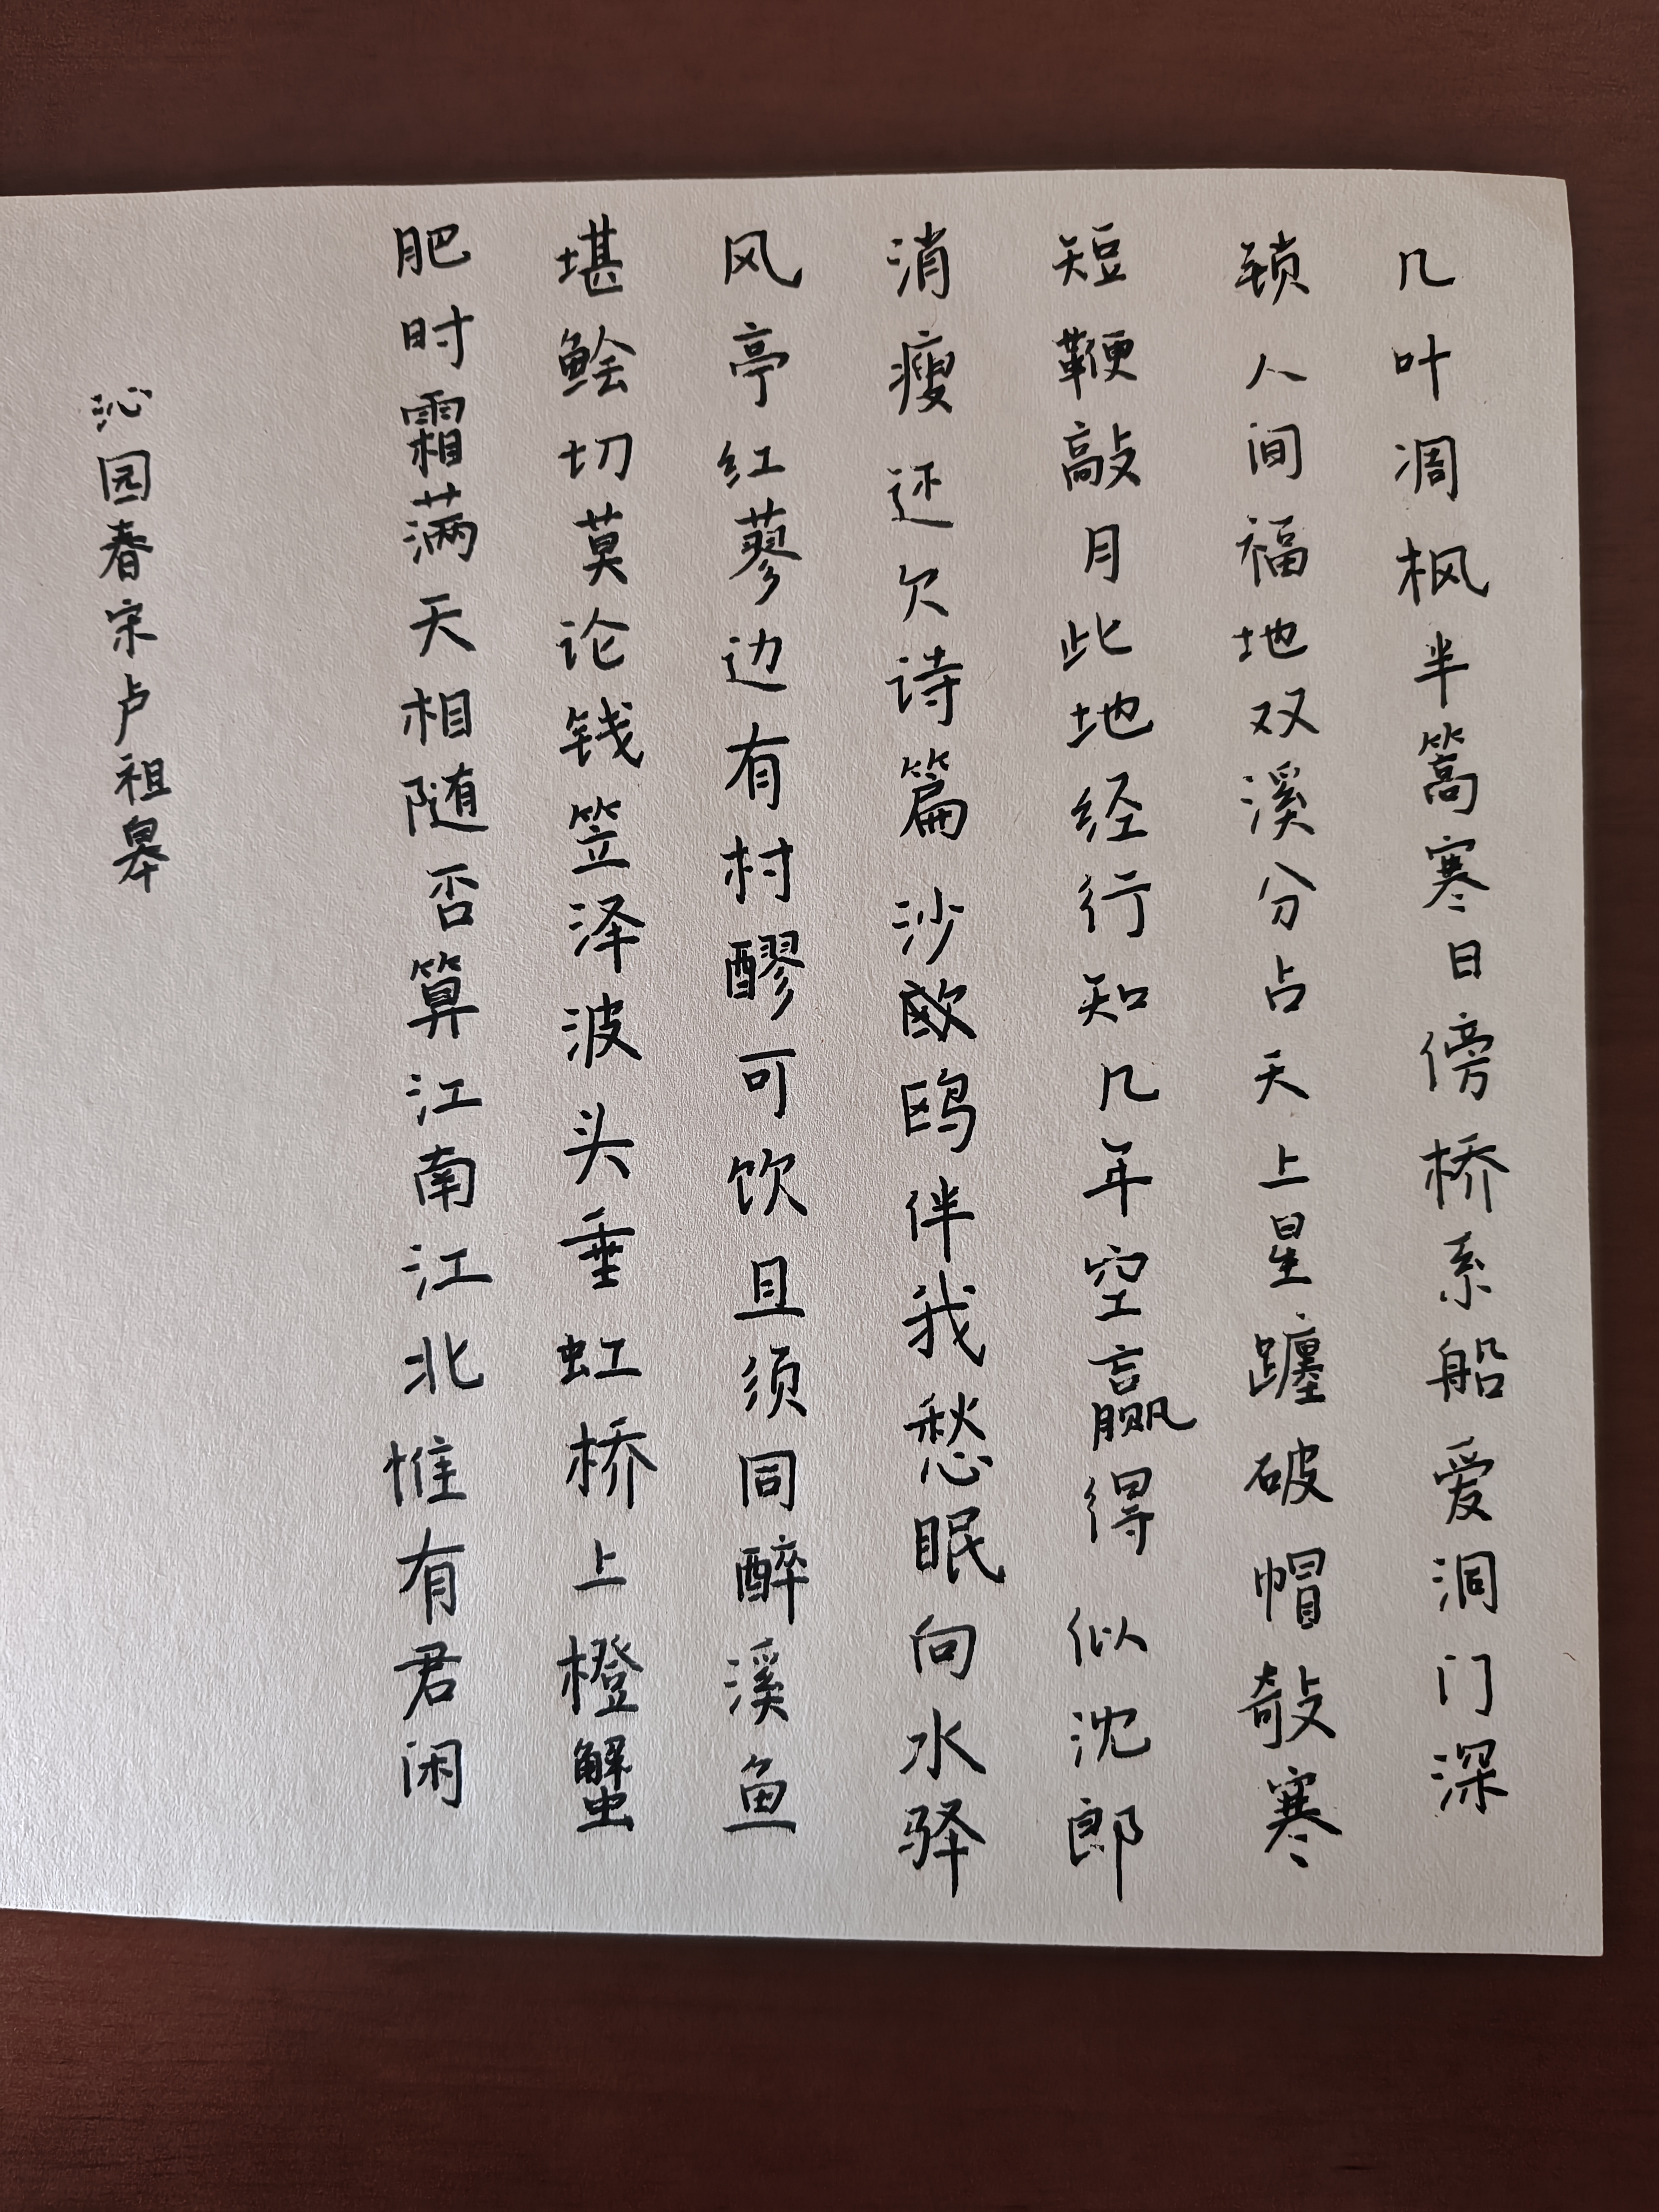 几叶凋枫半篙寒日傍桥系船爱洞门深
锁人间福地双溪分占天上星躔破帽敧寒
短鞭敲月此地经行知几年空赢得似沈郎
消瘦还欠诗篇沙欧鸥伴我愁眠向水驿
风亭红蓼边有村醪可饮且须同醉溪鱼
堪鲙切莫论钱笠泽波头垂虹桥上橙蟹
肥时霜满天相随否算江南江北惟有君闲
沁园春宋卢祖皋